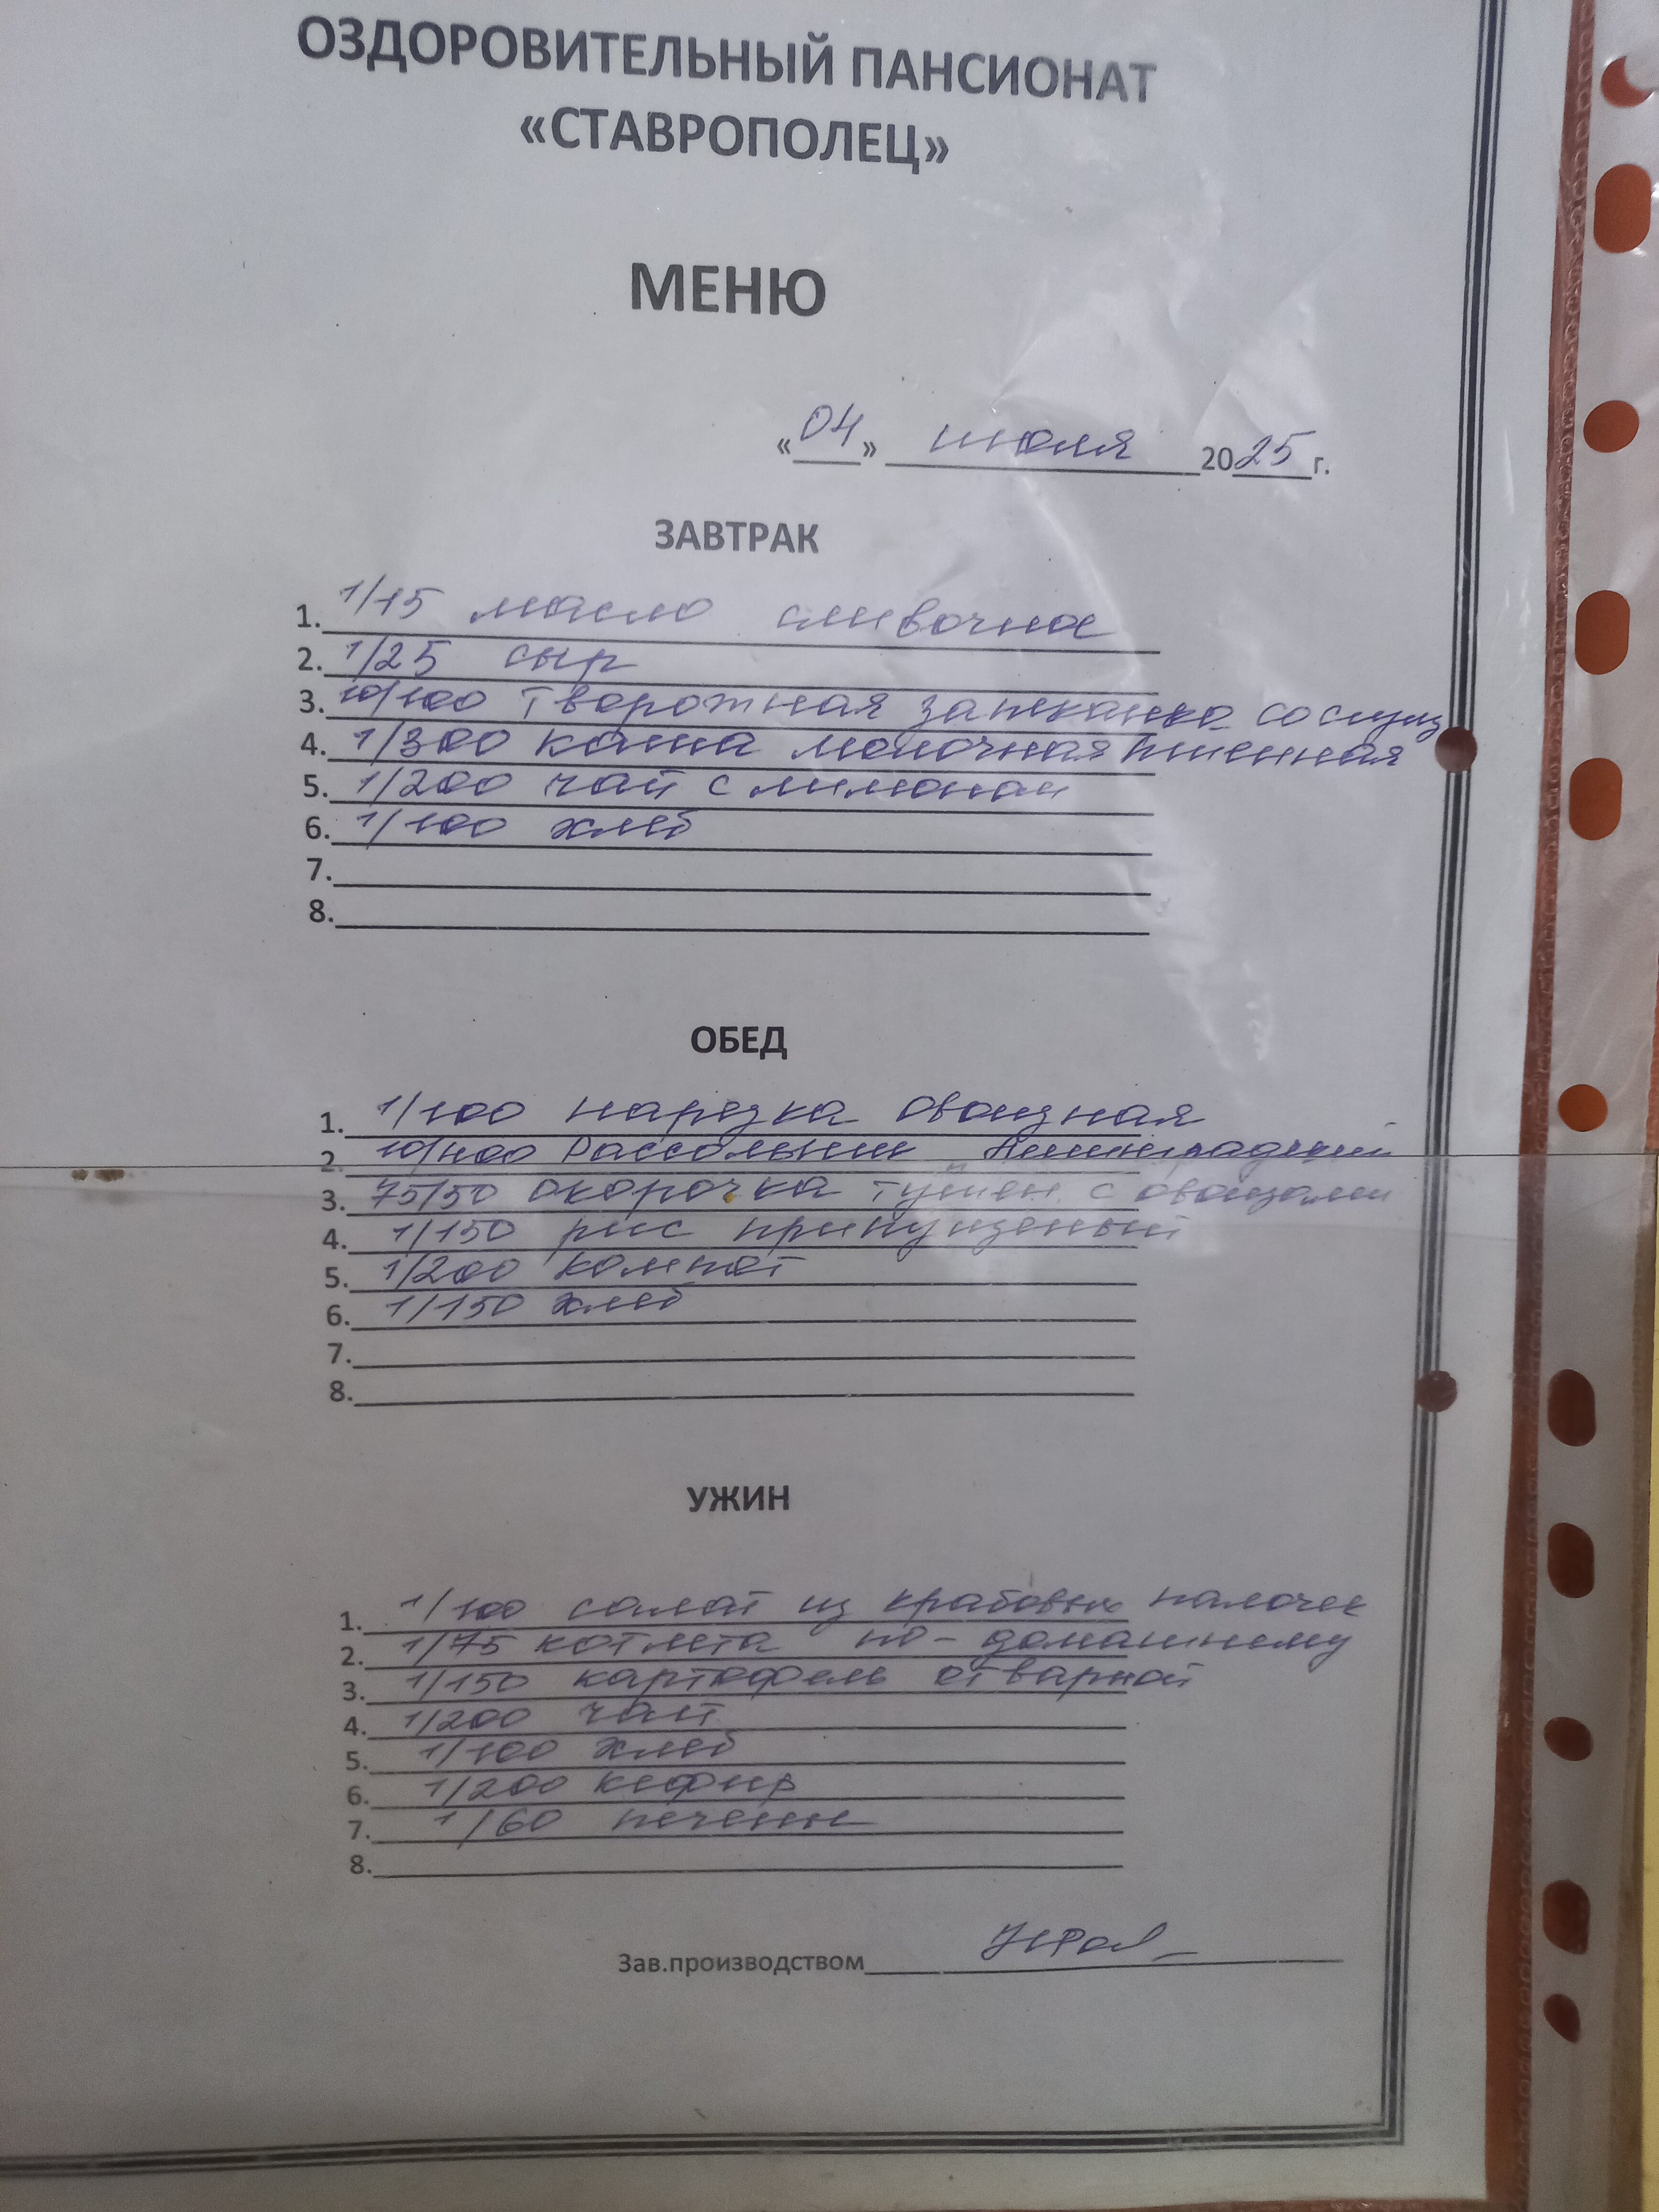 ОЗДОРОВИТЕЛЬНЫЙ ПАНСИОНАТ
«СТАВРОПОЛЕЦ»
МЕНЮ
«04» июля 2025 г.
ЗАВТРАК
1. 1/15 масло сливочное
2. 1/25 сыр
3. 10/100 творожная запеканка со сгущ
4. 1/300 каша молочная пшенная
5. 1/200 чай с лимоном
6. 1/100 хлеб
7.
8.
ОБЕД
1. 1/100 нарезка овощная
2. 10/400 Рассольник Ленинградский
3. 75/50 окорочка тушен. с овощами
4. 1/150 рис припущеный
5. 1/200 компот
6. 1/150 хлеб
7.
8.
УЖИН
1. 1/100 салат из крабовых палочек
2. 1/75 котлета по-домашнему
3. 1/150 картофель отварной
4. 1/200 чай
5. 1/100 хлеб
6. 1/200 кефир
7. 1/60 печенье
8.
Зав.производством